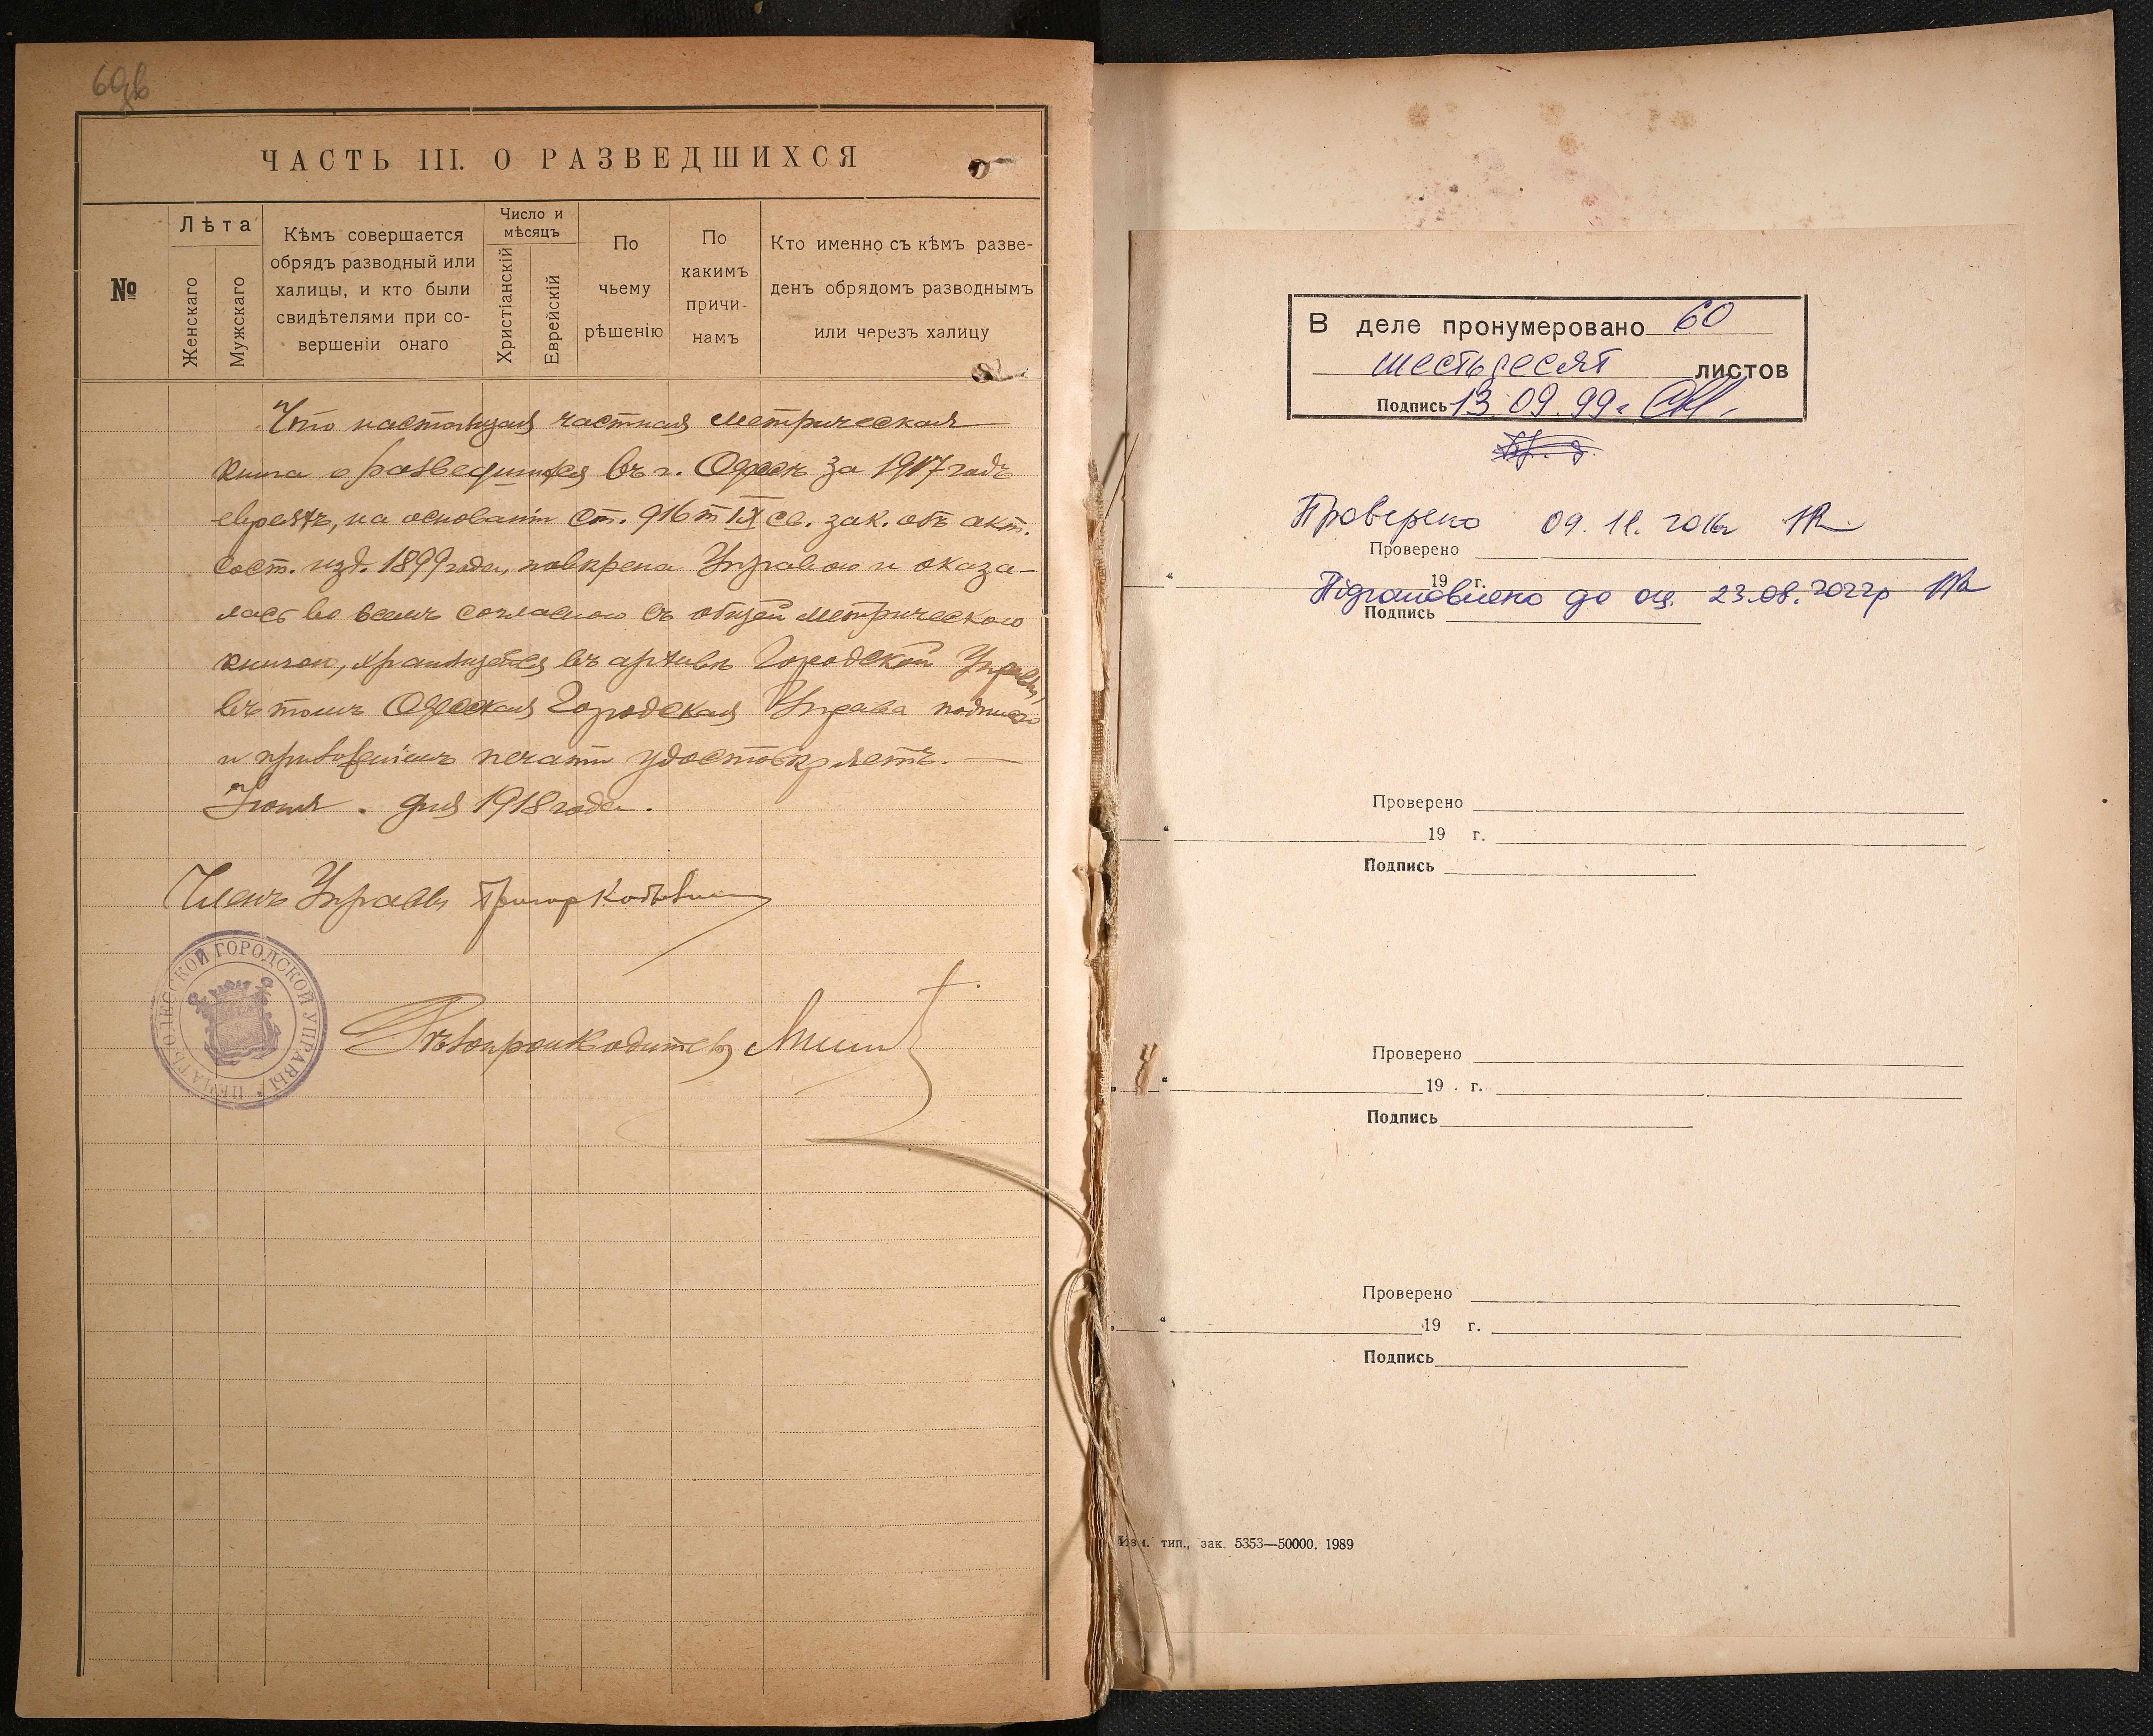 60об
ЧАСТЬ III. О РАЗВЕДШИХСЯ
№
Лѣта
Женскаго
Мужскаго
Кѣмъ совершается
обрядъ разводный или
халицы, и кто были
свидѣтелями при со-
вершеніи онаго
Число и
мѣсяцъ
Христіанскій
Еврейскій
По
чьему
рѣшенію
По
какимъ
причи-
намъ
Кто именно съ кѣмъ разве-
денъ обрядомъ разводнымъ
или черезъ халицу
Что настоящая частная метрическая
книга о разведшихся въ г. Одессѣ за 1917 годъ
евреяхъ, на основаніи ст. 916 т IX св. зак. объ акт.
сост. изд. 1899 года, повѣрена Управою и оказа-
лась во всемъ согласною съ общей метрическою
книгою, хранящейся въ архивѣ Городской Управы,
въ томъ Одесская Городская Управа подписью
и приложеніемъ печати удостовѣряетъ.
Іюня . дня 1918 года.
Членъ Управы
ПЕЧАТЬ ОДЕССКОЙ ГОРОДСКОЙ УПРАВЫ
Дѣлопроизводитель
В деле пронумеровано 60
шестьдесят листов
Подпись 13.09.99г
Проверено 09.11.2016г
Проверено
19 г.
Підготовлено до оц. 23.08.2022р
Подпись
Проверено
19 г.
Подпись
Проверено
19 г.
Подпись
Проверено
19 г.
Подпись
тип., зак. 5353—50000. 1989